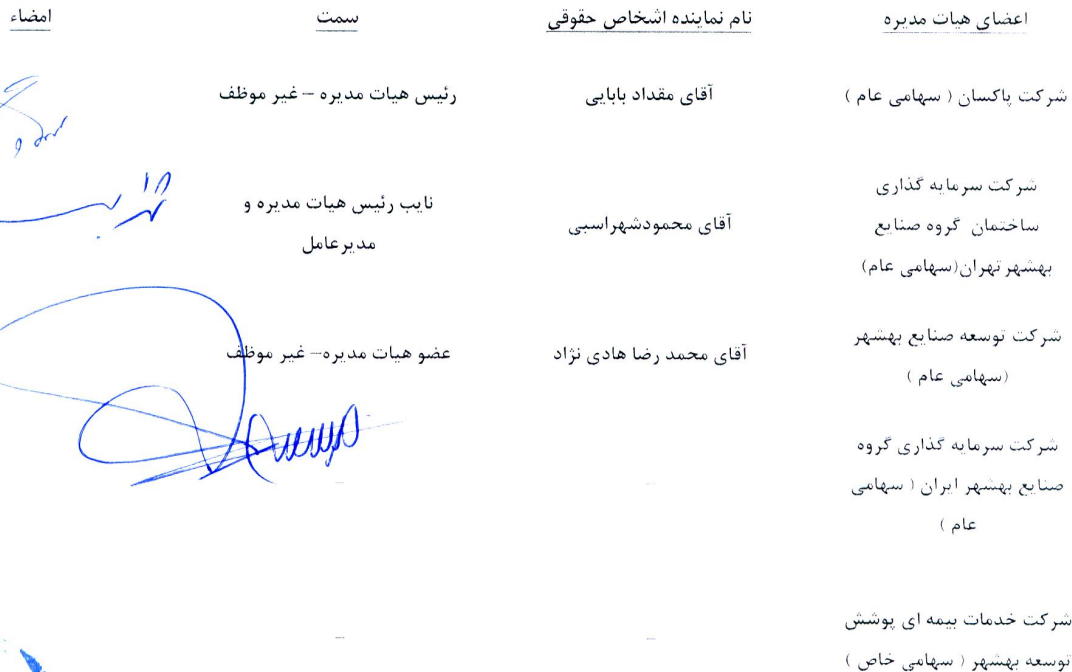 اعضای هیات مدیره نام نماینده اشخاص حقوقی سمت امضاء
شرکت پاکسان ( سهامی عام ) آقای مقداد بابایی رئیس هیات مدیره – غیر موظف
شرکت سرمایه گذاری
ساختمان گروه صنایع
بهشهر تهران(سهامی عام)
آقای محمودشهراسبی
نایب رئیس هیات مدیره و
مدیرعامل
شرکت توسعه صنایع بهشهر
(سهامی عام )
آقای محمد رضا هادی نژاد
عضو هیات مدیره– غیر موظف
شرکت سرمایه گذاری گروه
صنایع بهشهر ایران ( سهامی
عام )
–
–
شرکت خدمات بیمه ای پوشش
توسعه بهشهر ( سهامی خاص )
–
–